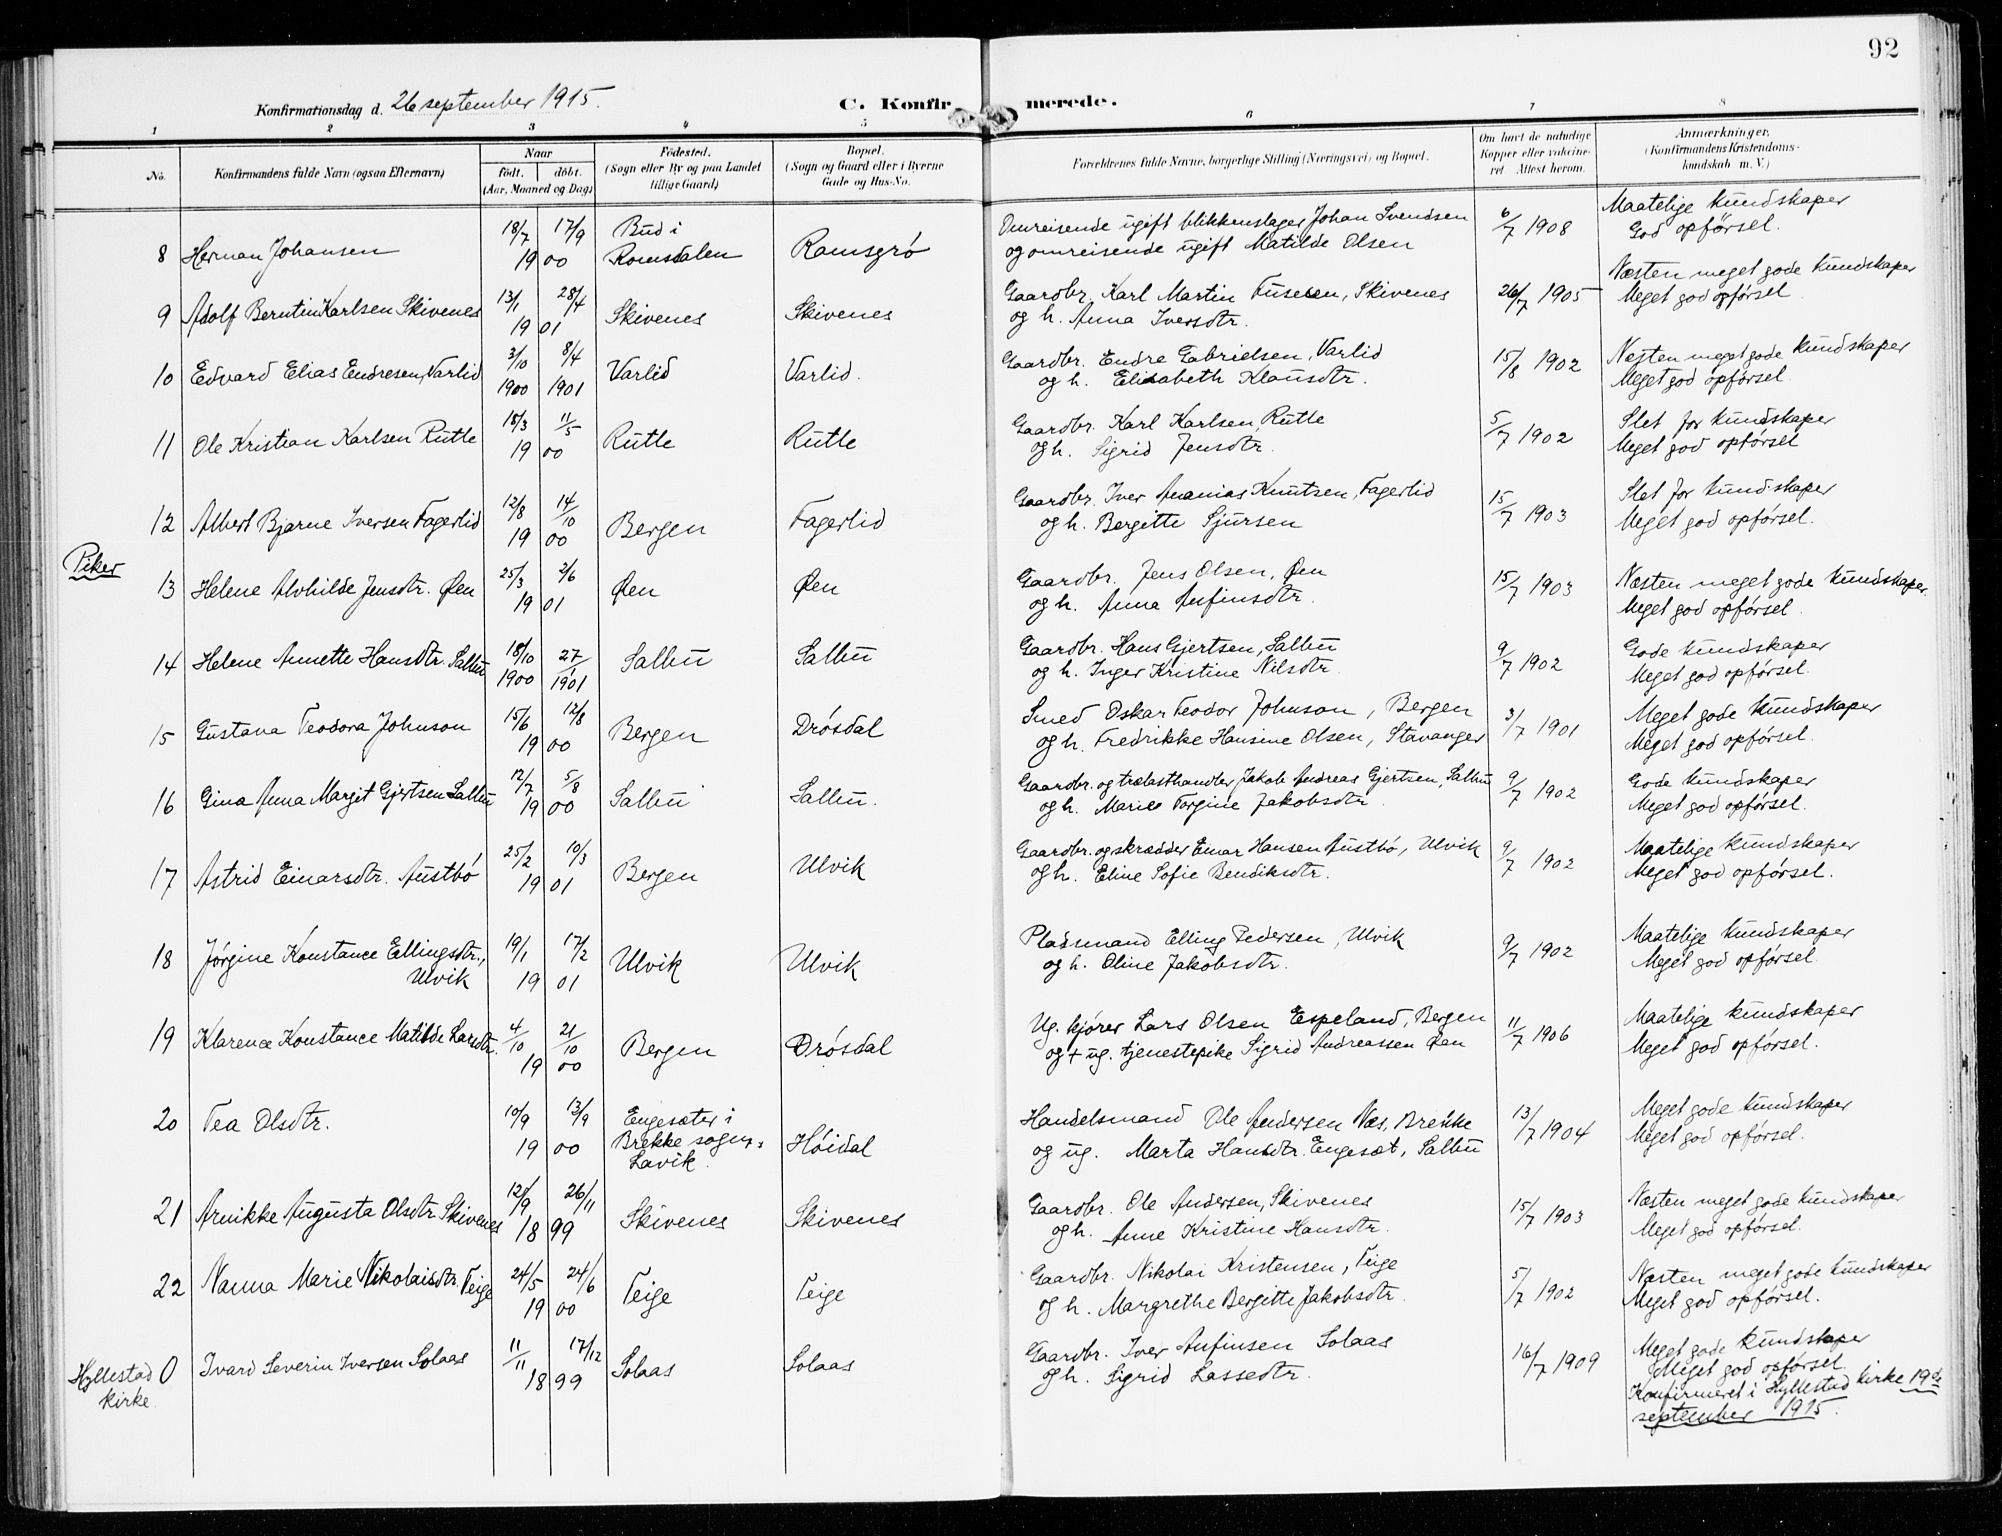 92
Konfirmationsdag d. 26 september 1915.
C. Konfirmerede.
1 2 3 4 5 6 7 8
No.
Konfirmandens fulde Navn (ogsaa Efternavn)
Naar
födt. döbt.
(Aar, Maaned og Dag)
Födested.
(Sogn eller By og paa Landet
tillige Gaard)
Bopæl.
(Sogn og Gaard eller i Byerne
Gade og Hus-No.
Forældrenes fulde Navne, borgerlige Stilling (Næringsvei) og Bopæl.
Om havt de naturlige
Kopper eller vakcine-
ret Attest herom.
Anmærkninger.
(Konfirmandens Kristendoms-
kundskab m. V.)
8 Herman Johansen 18/7 17/9 1900 Bud i Romsdalen Ramsgrø Omreisende ugift blikkenslager Johan Svendsen
og omreisende ugift Matilde Olsen 6/7 1908 Maatelige kundskaper
God opførsel.
9 Adolf Berntin Karlsen Skivenes 13/1 28/4 1901 Skivenes Skivenes Gaardbr. Karl Martin Tusesen, Skivenes
og h. Anna Iversdtr. 26/7 1905 Næsten meget gode kundskaper
Meget god opførsel
10 Edvard Elias Endresen, Varlid 3/10 1900 8/4 1901 Varlid Varlid. Gaardbr. Endre Gabrielsen, Varlid
og h. Elisabeth Klausdtr. 15/8 1902 Næsten meget gode kundskaper
Meget god opførsel
11 Ole Kristian Karlsen Rutle 18/3 11/5 1900 Rutle Rutle Gaardbr. Karl Karlsen, Rutle
og h. Sigrid Jensdtr. 5/7 1902 Slet for kundskaper
Meget god opførsel
12 Albert Bjarne Iversen Fagerlid 12/8 14/10 1900 Bergen Fagerlid Gaardbr. Iver Ananias Knutsen, Fagerlid
og h. Bergitte Sjursen 15/7 1903 Slet for kundskaper
Meget god opførsel.
Piker
13 Helene Alvhilde Jensdtr. Øen 25/3 2/6 1901 Øen Øen Gaardbr. Jens Olsen, Øen
og h. Anna Anfinsdtr. 15/7 1903 Næsten meget gode kundskaper.
Meget god opførsel.
14 Helene Annette Hansdtr. Salbu 18/10 1900 27/1 1901 Salbu Salbu Gaardbr. Hans Gjertsen, Salbu
og h. Inger Kristine Nilsdtr. 9/7 1902 Gode kundskaper
Meget god opførsel.
15 Gustava Teodora Johnson 15/6 12/8 1900 Bergen Drøsdal Smed Oskar Teodor Johnson, Bergen
og h. Fredrikke Hansine Olsen, Stavanger 3/7 1901 Meget gode kundskaper
Meget god opførsel.
16 Gina Anna Margit Gjertsen Salbu 12/7 5/8 1900 Salbu Salbu. Gaardbr. og trælasthandler Jakob Andreas Gjertsen, Salbu
og h. Marie Torgine Jakobsdtr. 9/7 1902 Gode kundskaper
Meget god opførsel.
17 Astrid Einarsdtr. Austbø 25/2 10/3 1901 Bergen Ulvik Gaardbr. og skrædder Einar Hansen Austbø, Ulvik
og h. Eline Sofie Bendiksdtr. 9/7 1902 Maatelige kundskaper
Meget god opførsel.
18 Jørgine Konstance Ellingsdtr., Ulvik 19/1 17/2 1901 Ulvik Ulvik Pladsmand Elling Pedersen, Ulvik
og h. Oline Jakobsdtr. 9/7 1902 Maatelige kundskaper
Meget god opførsel.
19 Klarence Konstance Matilde Larsdtr. 4/10 21/10 1900 Bergen Drøsdal Ug. kjører Lars Olsen Espeland, Bergen
og + ug. tjenestepike Sigrid Andreassen Øen 11/7 1906 Maatelige kundskaper
Meget god opførsel.
20 Tea Olsdtr. 10/9 13/9 1900 Engesæter i Brekke sogn, Lavik. Høidal Handelsmand Ole Andersen Næs, Brekke
og ug. Marta Hansdtr. Engesæt, Salbu 13/7 1904 Meget gode kundskaper
Meget god opførsel.
21 Arnikke Augusta Olsdtr. Skivenes 12/9 26/11 1899 Skivenes Skivenes Gaardbr. Ole Andersen, Skivenes
og h. Anne Kristine Hansdtr. 15/7 1903 Næsten meget gode kundskaper
Meget god opførsel.
22 Nanna Marie Nikolaisdtr. Teige 24/5 24/6 1900 Teige Teige Gaardbr. Nikolai Kristensen, Teige
og h. Margrethe Bergitte Jakobsdtr. 5/7 1902 Næsten meget gode kundskaper
Meget god opførsel.
Hyllestad kirke. 0 Ivard Severin Iversen Solaas 11/11 17/12 1899 Solaas Solaas Gaardbr. Iver Anfinsen Solaas
og h. Sigrid Lassedtr. 16/7 1909 Meget gode kundskaper
Meget god opførsel
Konfirmeret i Hyllestad kirke 19de
september 1915.